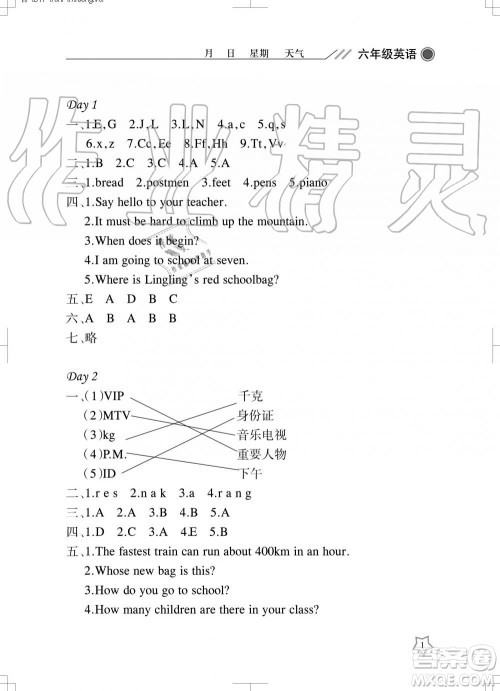 月 日 星期 天气 六年级英语
Day 1
一、1.E,G 2.J,L 3.L,N 4.a,c 5.q,s
6.x,z 7.Cc,Ee 8.Ff,Hh 9.Tt,Vv
二、1.B 2.C 3.A 4.C 5.A
三、1.bread 2.postmen 3.feet 4.pens 5.piano
四、1.Say hello to your teacher.
2.It must be hard to climb up the mountain.
3.When does it begin?
4.I am going to school at seven.
5.Where is Lingling's red schoolbag?
五、E A D B C
六、A B A B A
七、略
Day 2
一、(1)VIP 千克
(2)MTV 身份证
(3)kg 音乐电视
(4)P.M. 重要人物
(5)ID 下午
二、1.r e s 2.n a k 3.a 4.r a n g
三、1.A 2.C 3.A 4.C 5.A
四、1.D 2.C 3.A 4.E 5.B
五、1.The fastest train can run about 400km in an hour.
2.Whose new bag is this?
3.How do you go to school?
4.How many children are there in your class?
1
作业精灵
答案圈
MXQE.COM